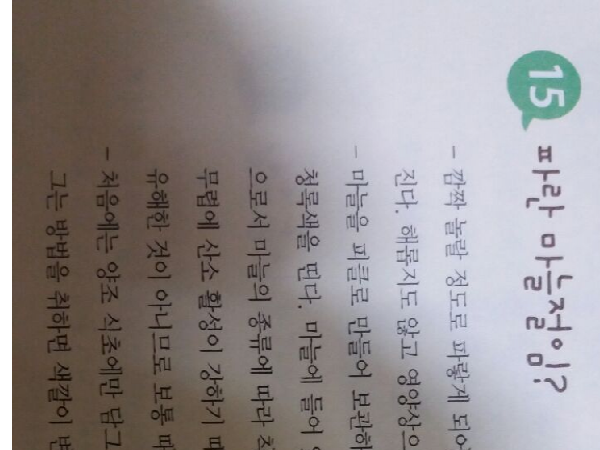 15
파란 마늘절임?
- 깜짝 놀랄 정도로 파랗게 되어
진다. 해롭지도 않고 영양상으
- 마늘을 피클로 만들어 보관하
청록색을 띤다. 마늘에 들어
으로서 마늘의 종류에 따라
무렵에 산소 활성이 강하기 때
유해한 것이 아니므로 보통 때
- 처음에는 양조 식초에만 담그
그는 방법을 취하면 색깔이 변